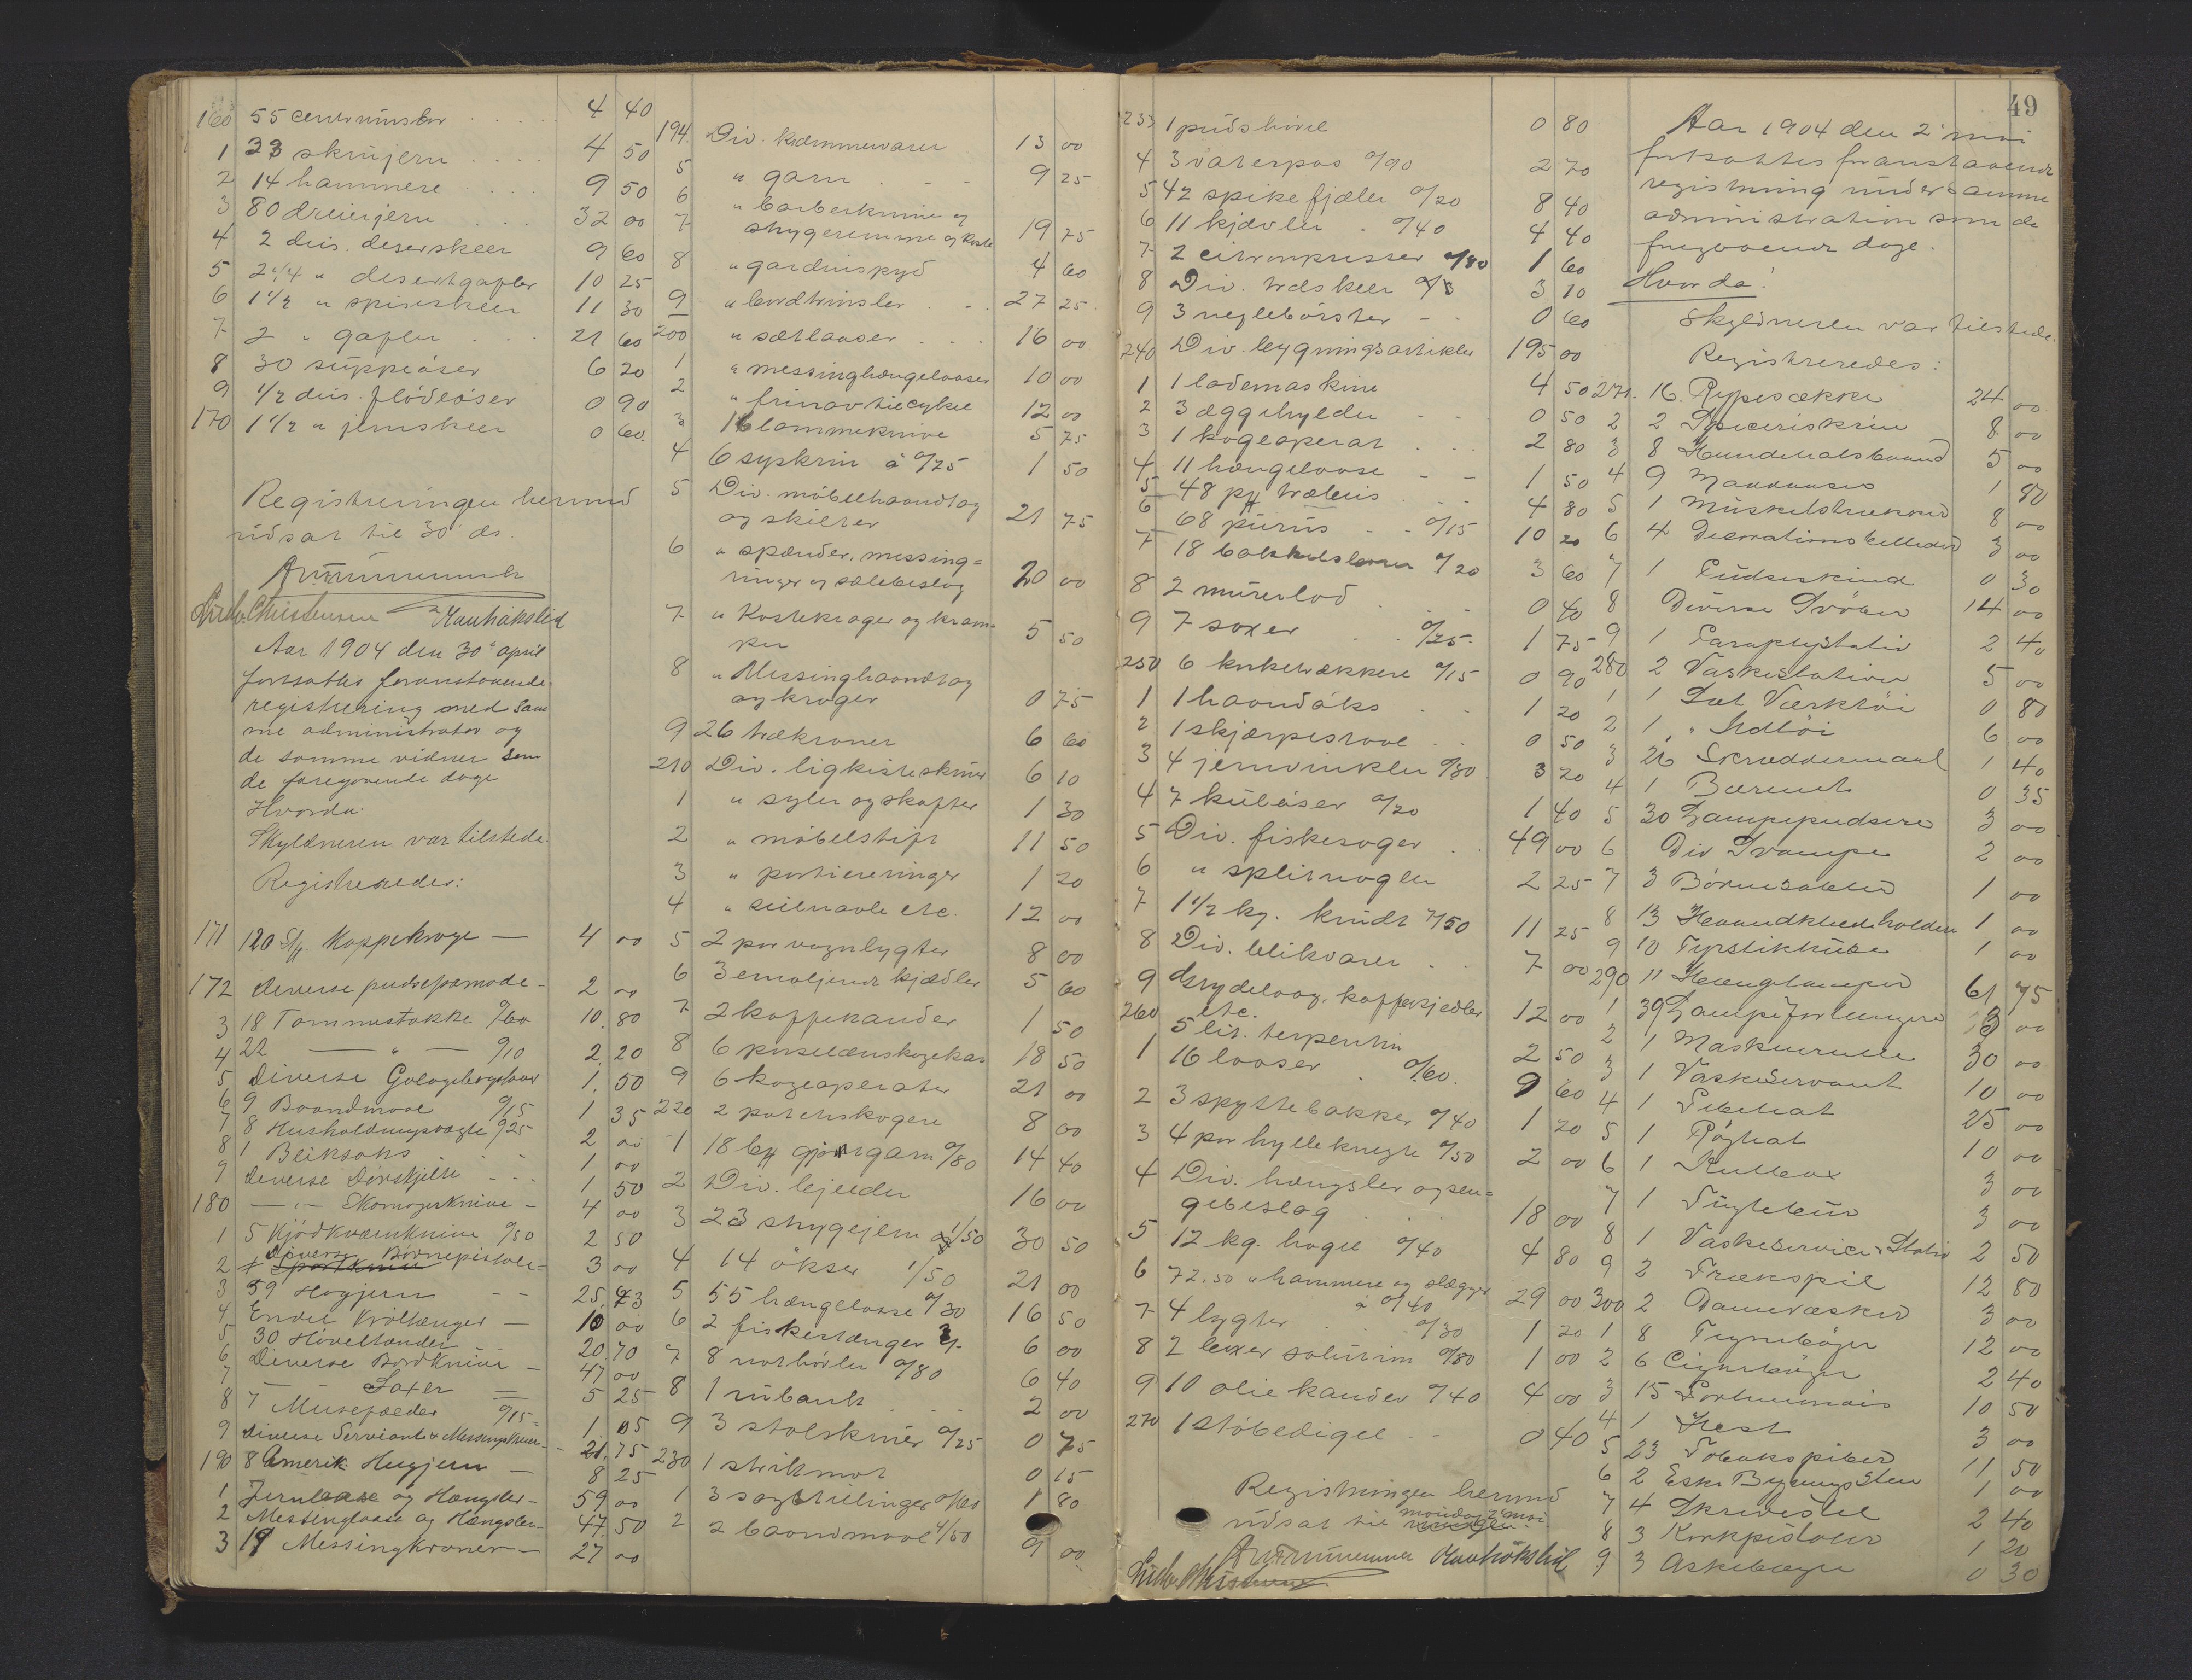 160 55 centrumsbor 4 40
1 33 skrujern 4 50
2 14 hammere 9 50
3 80 dreierjern 32 00
4 2 dus. deserskeer 9 60
5 2 1/4 " desertgafler 10 25
6 1 1/2 " spiseskeer 11 30
7 2 " gafler 21 60
8 30 suppeöser 6 20
9 1/2 dus. flödeöser 0 90
170 1 1/2 " jernskeer 0 60
Registreringen herved
udsat til 30' ds.
Christensen Haukaslid
Aar 1904 den 30' april
fortsattes foranstaaende
registrering med sam
me administrator og
de samme vidner som
de foregaaende dage
Hvorda:
Skyldneren var tilstede.
Registreredes:
171 120 St. Kappekroge — 4 00
172 diverse pudsepomade - 2 00
3 18 Tommestokke 0/60 10 80
4 22 — " — 0/10 2 20
5 Diverse 1 50
6 9 Baandmaal 0/15 1 35
7 8 Husholdningsvægte 0/25 2 00
8 1 Bliksaks 1 00
9 Diverse Dørskjilte 1 50
180 — " — Skomagerknive - 4 00
1 5 Kjödkværnknive 0/50 2 50
2 Diverse Börnepistoler = 3 00
3 59 Hogjern - - 25 43
4 Endel Knibtænger — 10 00
5 30 Høveltænder 20 70
6 Diverse Bordknive — 47 00
7 — Saxer = 5 25
8 7 Musefælder 0/15 = 1 05
9 diverse Serviant & Messingskruer - 21 75
190 8 Amerik Hugjern — 8 25
1 Jernlaase og Hængsler - 59 00
2 Messinglaase og Hængsler - 47 50
3 19 Messingkroner — 27 00
194. Div. kræmmervarer 13 00
5 " garn 9 25
6 " barberknive og
7 strygeremme og koste 19 75
8 " gardinspyd 4 60
9 " bordtrinsler 27 25
200 " sætlaaser 16 00
1 " messinghængelaaser 10 00
2 " frinav til cykel 12 00
3 16 lommeknive 5 75
4 6 syskrin à 0/25 1 50
5 Div. möbelhaandtag
og skilter 21 75
6 " spænder, messing=
ringer og sælebeslag 20 00
7 " Kostekroger og kram=
per 5 50
8 " Messinghaandtag
og kroger 0 75
9 26 trækroner 6 60
210 Div. ligkisteskruer 6 10
1 " syler og skafter 1 30
2 " möbelstift 11 50
3 " portiereringer 1 20
4 " seilnaale etc. 12 00
5 2 par vognlygter 8 00
6 3 emaljerede kjedler 5 60
7 2 kaffekander 1 50
8 6 porselænskogekar 18 50
9 6 kogeaperater 21 00
220 2 potetskogere 8 00
1 18 bg gjörtgarn 0/80 14 40
2 Div. bjelder 16 00
3 23 strygejern 1/50 30 50
4 14 ökser 1/50 21 00
5 55 hængelaase 0/30 16 50
6 2 fiskestænger 3/- 6 00
7 8 nothövler 0/80 6 40
8 1 rubank 2 00
9 3 stolskruer 0/25 0 75
230 1 strikmot 0 15
1 3 sagstillinger 0/60 1 80
2 2 baandmaal 4/50 9 00
49
233 1 pudshivel 0 80
4 3 vaterpas 0/90 2 70
5 42 spikefjæler 0/20 8 40
6 11 kjævler 0/40 4 40
7 2 citronpresser 0/80 1 60
8 Div. træskeer 3 10
9 3 neglebörster - - 0 60
240 Div. bygningsartikler 195 00
1 1 lademaskine 4 50
2 3 æggehylder 0 50
3 1 kogeaperat 2 80
4 11 hængelaase 1 50
5 48 pk træ 4 80
6 68 0/15 10 20
7 18 0/20 3 60
8 2 murerlod 0 40
9 7 saxer 0/25 1 75
250 6 korketrækkere 0/15 0 90
1 1 haandöks 1 20
2 1 skjærpestaal 0 50
3 4 jernvinkler 0/80 3 20
4 7 kulöser 0/20 1 40
5 Div. fiskesager 49 00
6 " splitnagler 2 25
7 1 1/2 kg. krudt 7/50 11 25
8 Div. blikvarer 7 00
9 Grydelaag, kaffekjedler
etc. 12 00
260 5 lit. terpentin 2 50
1 16 laaser 0/60 9 60
2 3 spyttebakker 0/40 1 20
3 4 par hylleknegte 0/50 2 00
4 Div. hængsler og sen=
gebeslag 18 00
5 12 kg. hagel 0/40 4 80
6 72.50 " hammere og slægger
à 0/40 29 00
7 4 lygter 0/30 1 20
8 2 bexer solutin 0/80 1 00
9 10 oliekander 0/40 4 00
270 1 stöbedigel - - 0 40
Registringen herved
udsat til mandag 2' mai.
Haukaslid
Aar 1904 den 2' mai
fortsattes foranstaaende
registrering under samme
administration som de
foregaaende dage.
Hvorda:
Skyldneren var tilstede.
Registreredes:
271. 16 Rypesække 24 00
2 2 Speceriskrin 8 00
3 8 Hundehalsbaand 5 00
4 9 1 80
5 1 Muskelstrækker 8 00
6 4 Decorationsbilleder 3 00
7 1 Pudseskind 0 30
8 Diverse Svöber 14 00
9 1 Paraplystativ 2 40
280 2 Vaskestativer 5 00
1 1 Sæt Værktöi 0 80
2 1 " Ildtöi 6 00
3 26 Skræddermaal 1 40
4 1 Bærenet 0 35
5 30 Lampepudsere 3 00
6 Div Svampe 2 00
7 3 Børnesabler 1 00
8 13 Haandklædeholdere 1 00
9 10 Fyrstikhuse 1 00
290 11 Hænglamper 61 75
1 39 Lampeforlængere 13 00
2 1 Maskinrulle 30 00
3 1 Vaskeservant 10 00
4 1 25 00
5 1 10 00
6 1 Kulbox 3 00
7 1 Fuglebur 3 00
8 1 Vaskeservice & Stativ 2 50
9 2 Trækspil 12 80
300 2 Damevæsker 3 00
1 8 12 00
2 6 2 40
3 15 Portemonais 10 50
4 1 Hest 3 00
5 23 Tobakspiber 11 50
6 2 Eske Bygningssten 1 00
7 4 2 40
8 3 Korkpistoler 1 20
9 3 Askebæger 0 30